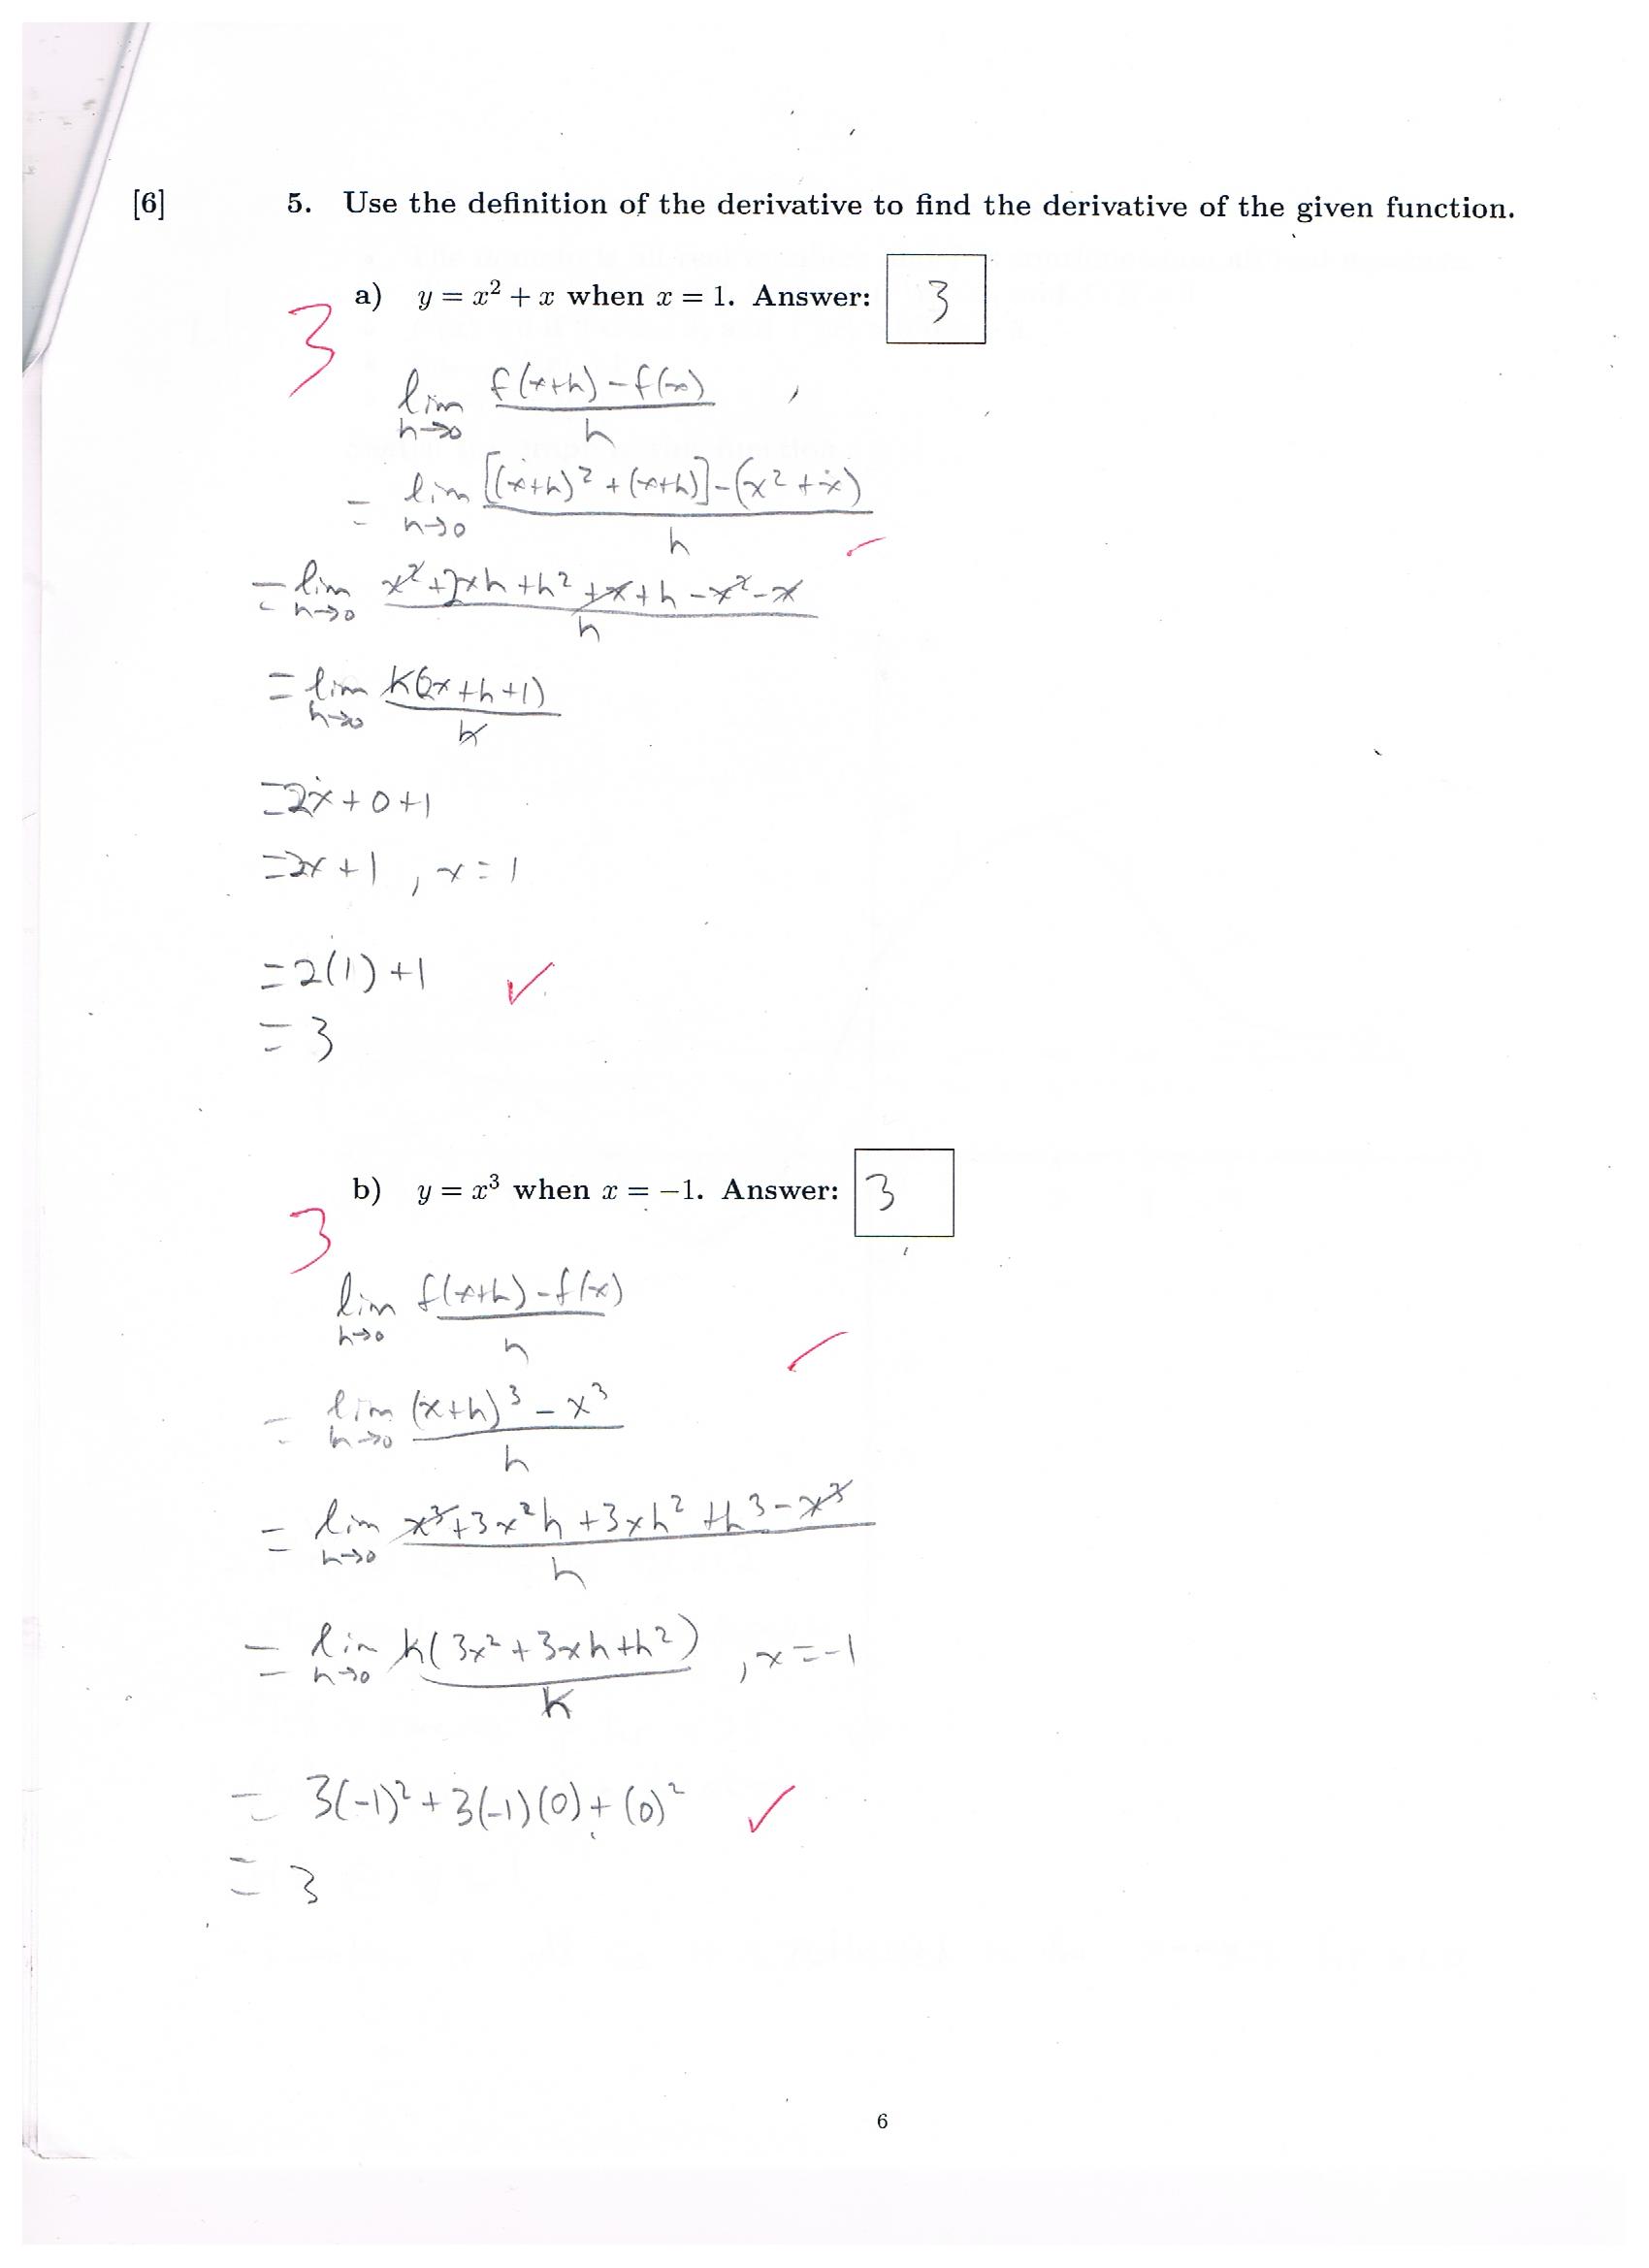 [6] 5. Use the definition of the derivative to find the derivative of the given function.
a) y = x² + x when x = 1. Answer: 3
3
lim h→0 f(x+h) - f(x) / h
= lim h→0 [(x+h)² + (x+h)] - (x² + x) / h
= lim h→0 x² + 2xh + h² + x + h - x² - x / h
= lim h→0 h(2x + h + 1) / h
= 2x + 0 + 1
= 2x + 1 , x = 1
= 2(1) + 1 ✓
= 3
b) y = x³ when x = −1. Answer: 3
3
lim h→0 f(x+h) - f(x) / h
= lim h→0 (x+h)³ - x³ / h
= lim h→0 x³ + 3x²h + 3xh² + h³ - x³ / h
= lim h→0 h(3x² + 3xh + h²) / h , x = -1
= 3(-1)² + 3(-1)(0) + (0)² ✓
= 3
6